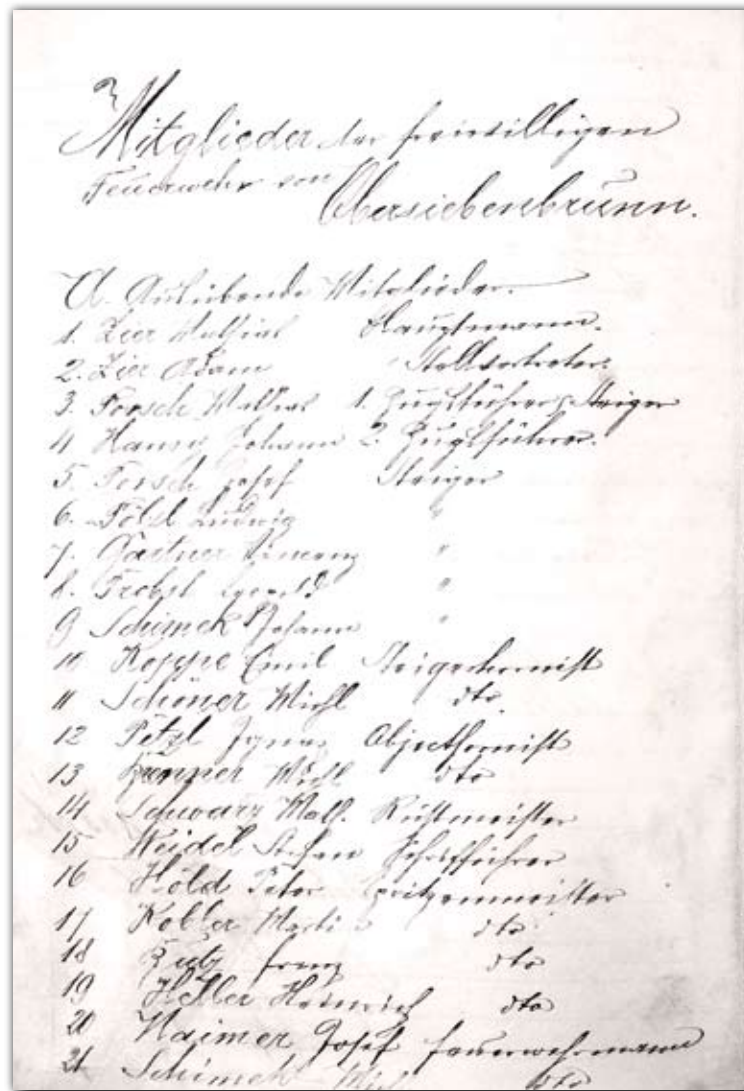 Mitglieder der freiwilligen
Feuerwehr von
Obersiebenbrunn.
A. Ausübende Mitglieder.
1. Zier Mathias Hauptmann.
2. Zier Adam Stellvertreter.
3. Forsch Mathias 1. Zugsführer, Steiger
4 Hanny Johann 2. Zugsführer.
5. Forsch Josef Steiger
6. Ludwig "
7. Gärtner Vincenz "
8. Probst "
9 Schimek Johann "
10 Koppe Emil Steigerhornist
11 Schöner Michl dto.
12 Petzl Ignaz Objecthornist
13 Michl dto
14 Schwarz Math. Rüstmeister
15 Weidel Stefan Schriftführer
16 Höld Peter Spritzenmeister
17 Kobler Martin dto
18 Franz dto
19 Heller Heinrich dto
20 Haimer Josef Feuerwehrmann
21 Schimek dto